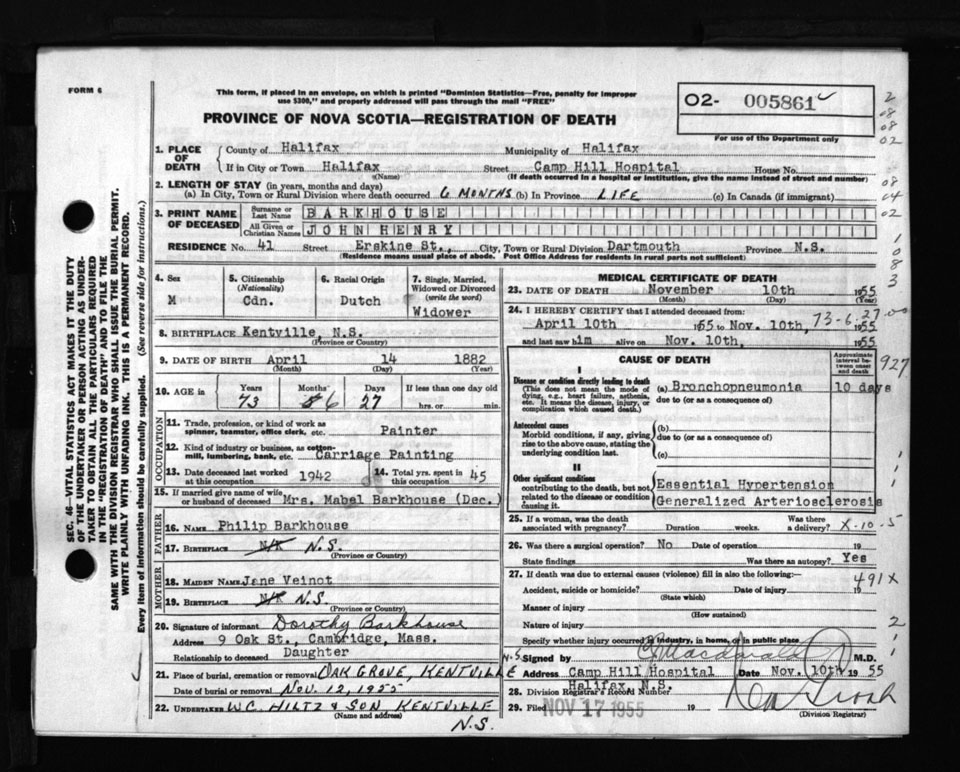 FORM 6
This form, if placed in an envelope, on which is printed "Dominion Statistics—Free, penalty for improper
use $300," and properly addressed will pass through the mail "FREE"
PROVINCE OF NOVA SCOTIA—REGISTRATION OF DEATH
O2- 005861
For use of the Department only
SEC. 46—VITAL STATISTICS ACT MAKES IT THE DUTY
OF THE UNDERTAKER OR PERSON ACTING AS UNDER-
TAKER TO OBTAIN ALL THE PARTICULARS REQUIRED
IN THE "REGISTRATION OF DEATH" AND TO FILE THE
SAME WITH THE DIVISION REGISTRAR WHO SHALL ISSUE THE BURIAL PERMIT.
WRITE PLAINLY WITH UNFADING INK. THIS IS A PERMANENT RECORD.
Every item of information should be carefully supplied. (See reverse side for instructions.)
1. PLACE OF DEATH
County of Halifax Municipality of Halifax
If in City or Town Halifax Street Camp Hill Hospital House No.
(Name) (If death occurred in a hospital or institution, give the name instead of street and number)
2. LENGTH OF STAY (in years, months and days)
(a) In City, Town or Rural Division where death occurred 6 MONTHS (b) In Province LIFE (c) In Canada (if immigrant)
3. PRINT NAME OF DECEASED
Surname or Last Name BARKHOUSE
All Given or Christian Names JOHN HENRY
RESIDENCE No. 41 Street Erskine St., City, Town or Rural Division Dartmouth Province N.S.
(Residence means usual place of abode. Post Office Address for residents in rural parts not sufficient)
4. Sex
M
5. Citizenship
(Nationality)
Cdn.
6. Racial Origin
Dutch
7. Single, Married,
Widowed or Divorced
(write the word)
Widower
8. BIRTHPLACE Kentville, N.S.
(Province or Country)
9. DATE OF BIRTH April 14 1882
(Month) (Day) (Year)
10. AGE in Years Months Days If less than one day old
73 6 27 hrs. or min.
OCCUPATION
11. Trade, profession, or kind of work as
spinner, teamster, office clerk, etc. Painter
12. Kind of industry or business, as cotton-
mill, lumbering, bank, etc. Carriage Painting
13. Date deceased last worked
at this occupation 1942
14. Total yrs. spent in
this occupation 45
15. If married give name of wife
or husband of deceased Mrs. Mabel Barkhouse (Dec.)
FATHER
16. NAME Philip Barkhouse
17. BIRTHPLACE N/K N.S.
(Province or Country)
MOTHER
18. MAIDEN NAME Jane Veinot
19. BIRTHPLACE N/K N.S.
(Province or Country)
20. Signature of informant Dorothy Barkhouse
Address 9 Oak St., Cambridge, Mass.
Relationship to deceased Daughter
21. Place of burial, cremation or removal OAK GROVE, KENTVILLE N.S.
Date of burial or removal NOV. 12, 1955
22. UNDERTAKER W.C. HILTZ & SON, KENTVILLE
(Name and address)
N.S.
MEDICAL CERTIFICATE OF DEATH
23. DATE OF DEATH November 10th 1955
(Month) (Day) (Year)
24. I HEREBY CERTIFY that I attended deceased from: 73-6-27-00
April 10th 1955 to Nov. 10th, 1955
and last saw him alive on Nov. 10th, 1955
CAUSE OF DEATH
Approximate
interval be-
tween onset
and death
927
I
Disease or condition directly leading to death
(This does not mean the mode of
dying, e.g., heart failure, asthenia,
etc. It means the disease, injury, or
complication which caused death.)
(a) Bronchopneumonia 10 days
due to (or as a consequence of)
Antecedent causes
Morbid conditions, if any, giving
rise to the above cause, stating the
underlying condition last.
(b)
due to (or as a consequence of)
(c)
II
Other significant conditions
contributing to the death, but not
related to the disease or condition
causing it.
Essential Hypertension
Generalized Arteriosclerosis
25. If a woman, was the death
associated with pregnancy? Duration weeks. Was there
a delivery? X-10-5
26. Was there a surgical operation? No Date of operation 19
State findings Was there an autopsy? Yes
27. If death was due to external causes (violence) fill in also the following: 491X
Accident, suicide or homicide? Date of injury 19
(State which)
Manner of injury
(How sustained)
Nature of injury
Specify whether injury occurred in industry, in home, or in public place
Signed by M.D.
Address Camp Hill Hospital Date Nov. 10th 1955
Halifax N.S.
28. Division Registrar's Record Number
29. Filed NOV 17 1955 19
(Division Registrar)
2
08
08
02
08
04
02
1
0
8
3
2